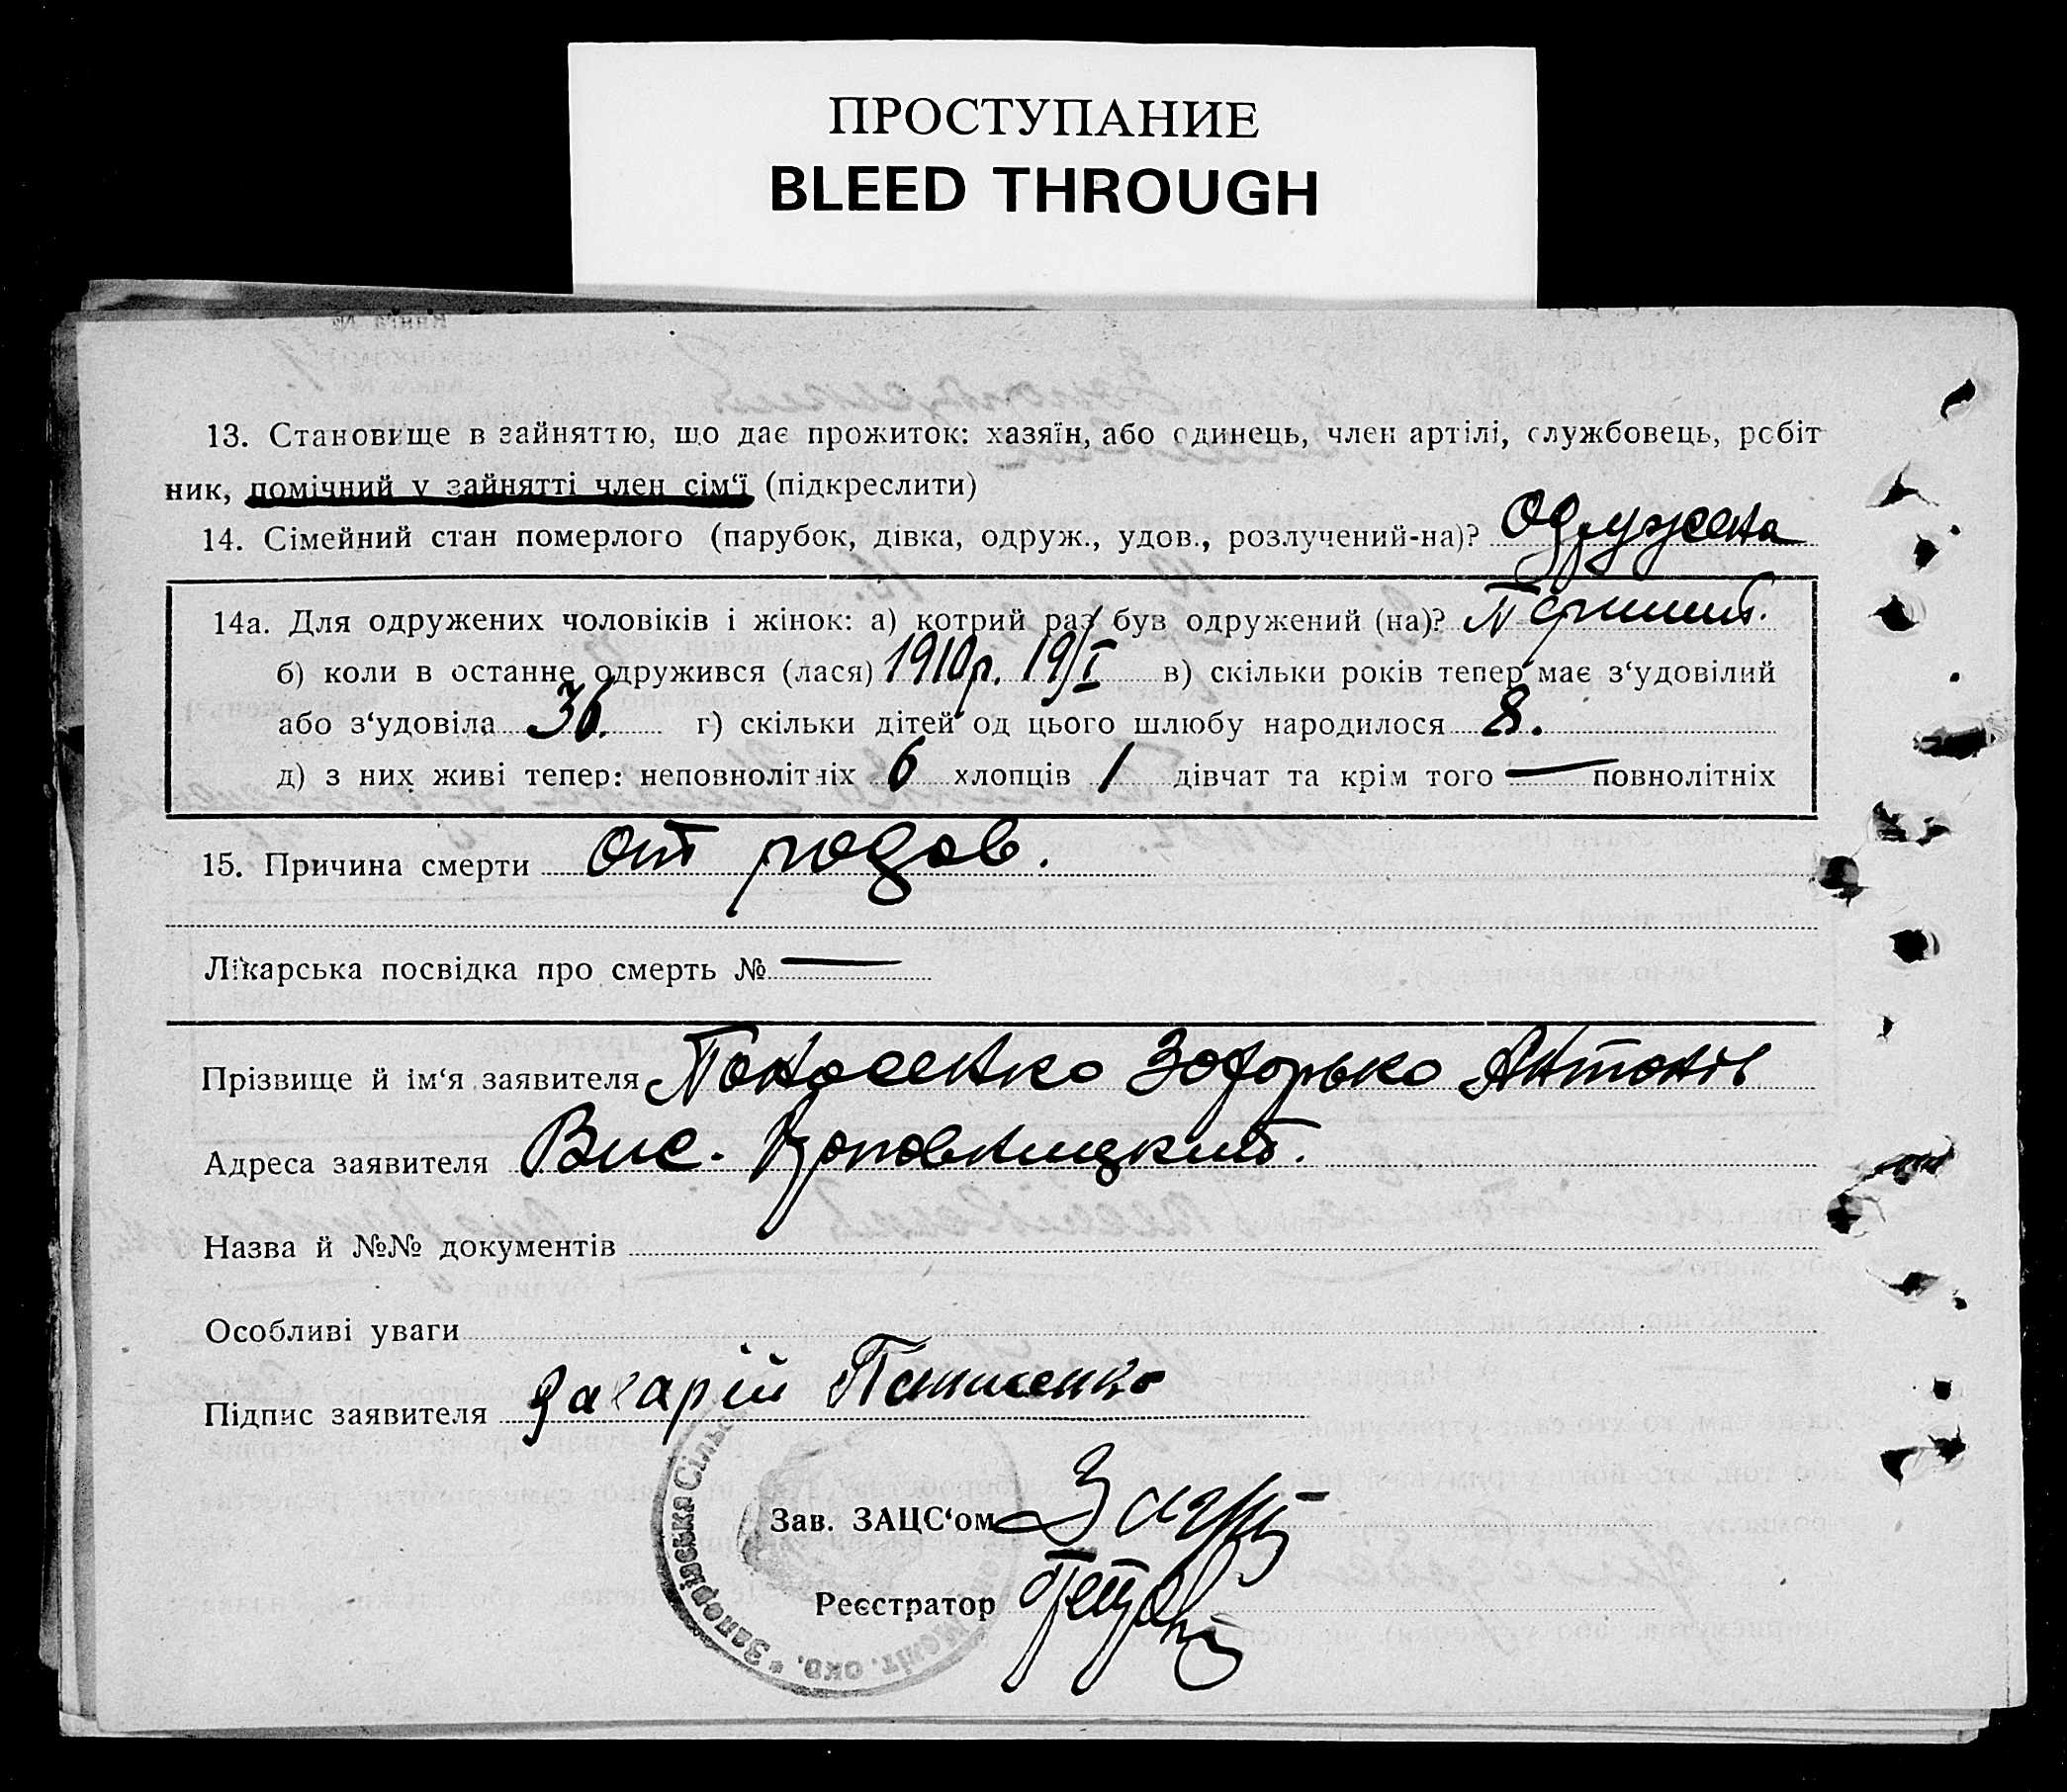 ПРОСТУПАНИЕ
BLEED THROUGH
13. Становище в зайняттю, що дає прожиток: хазяїн, або одинець, член артілі, службовець, робіт
ник, помічний у зайнятті член сім'ї (підкреслити)
14. Сімейний стан померлого (парубок, дівка, одруж., удов., розлучений-на)? Одружена
14а. Для одружених чоловіків і жінок: а) котрий раз був одружений (на)? Перший.
б) коли в останнє одружився (лася) 1910р. 19/I в) скільки років тепер має з'удовілий
або з'удовіла 36. г) скільки дітей од цього шлюбу народилося 8.
д) з них живі тепер: неповнолітніх 6 хлопців 1 дівчат та крім того — повнолітніх
15. Причина смерти от родов.
Лікарська посвідка про смерть № —
Прізвище й ім'я заявителя Понасенко Захарько Антонів
Адреса заявителя Вис.
Назва й №№ документів
Особливі уваги
Підпис заявителя Захарій Панасенко
Зав. ЗАЦС'ом
Реєстратор
* Запорівська Сільс
окр.